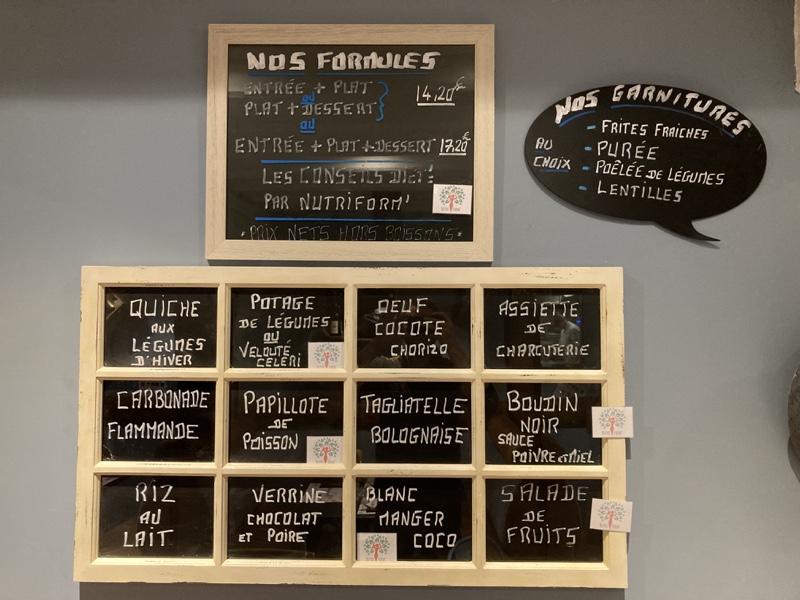 NOS FORMULES
ENTRÉE + PLAT
ou
PLAT + DESSERT
14,20€
ou
ENTRÉE + PLAT + DESSERT 17,20€
LES CONSEILS DIET!
PAR NUTRIFORM'
*PRIX NETS HORS BOISSONS*
NOS GARNITURES
AU CHOIX
- FRITES FRAICHES
- PURÉE
- POÊLÉE DE LÉGUMES
- LENTILLES
QUICHE
AUX
LÉGUMES
D'HIVER
POTAGE
DE LÉGUMES
OU
VELOUTÉ
CELERI
OEUF
COCOTE
CHORIZO
ASSIETTE
DE
CHARCUTERIE
CARBONADE
FLAMMANDE
PAPILLOTE
DE
POISSON
TAGLIATELLE
BOLOGNAISE
BOUDIN
NOIR
SAUCE
POIVRE et MIEL
RIZ
AU
LAIT
VERRINE
CHOCOLAT
ET POIRE
BLANC
MANGER
COCO
SALADE
DE
FRUITS